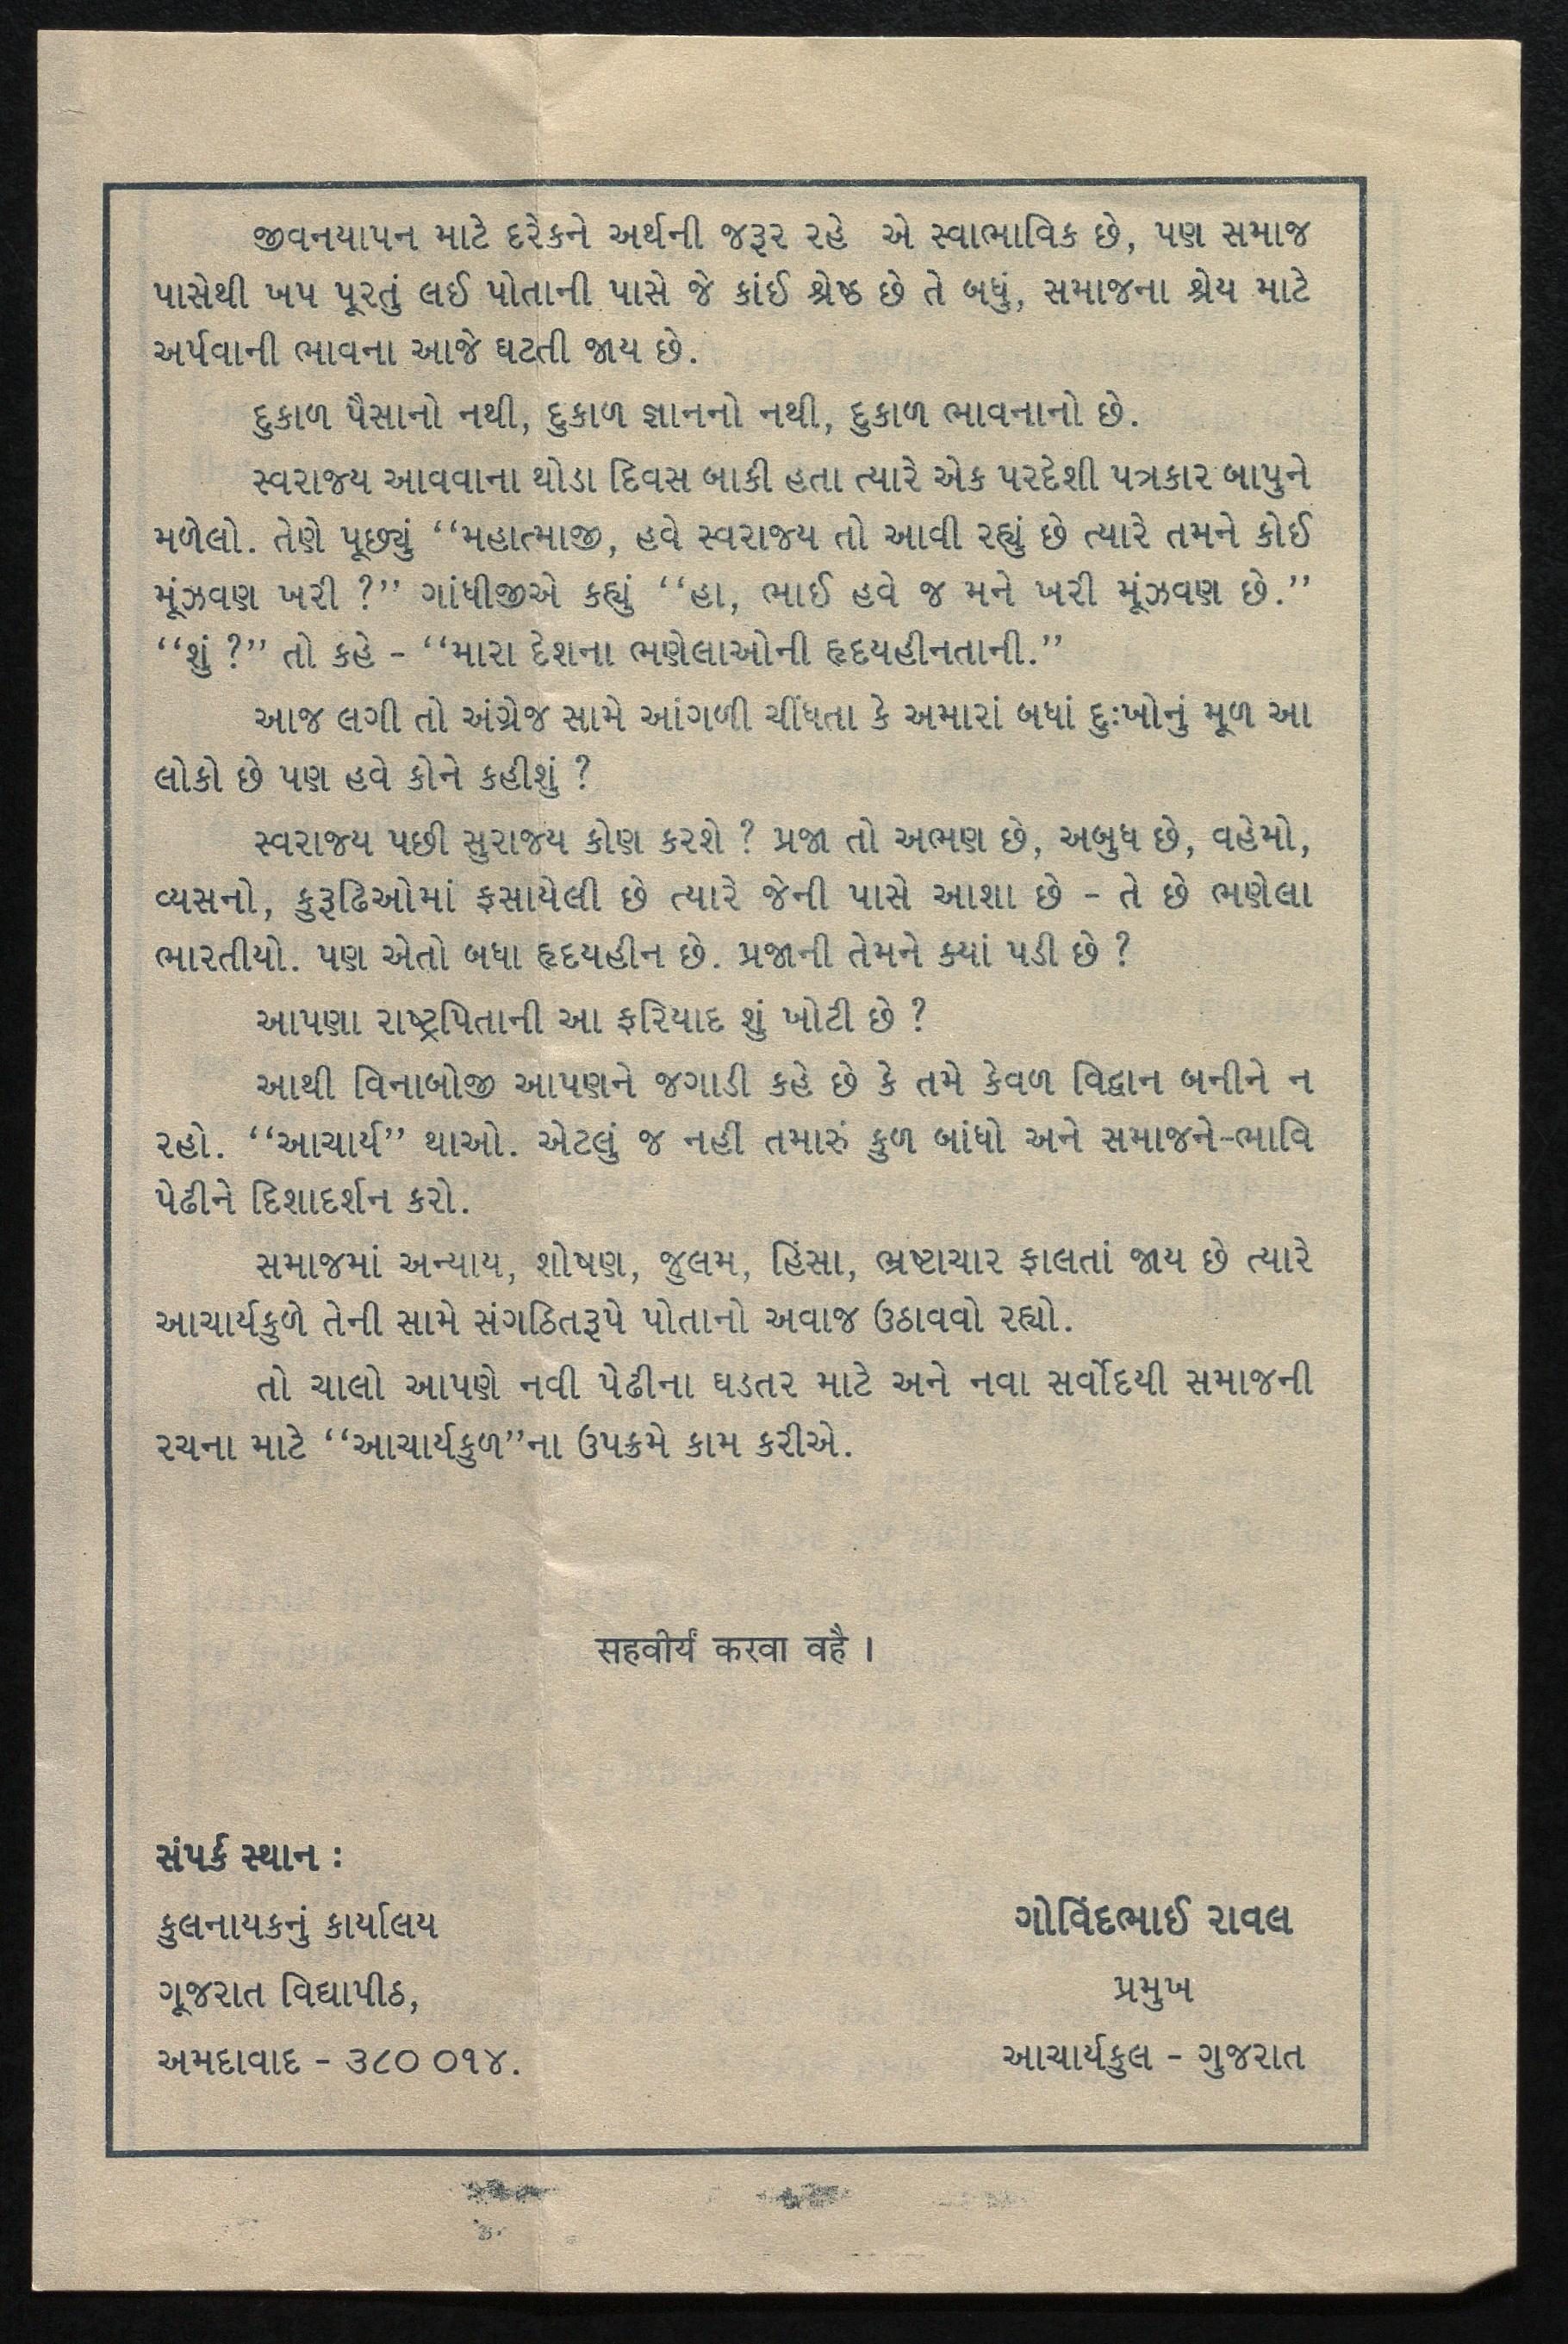 જીવનયાપન માટે દરેકને અર્થની જરૂર રહે એ સ્વાભાવિક છે, પણ સમાજ
પાસેથી ખપ પૂરતું લઈ પોતાની પાસે જે કાંઈ શ્રેષ્ઠ છે તે બધું, સમાજના શ્રેય માટે
અર્પવાની ભાવના આજે ઘટતી જાય છે.
દુકાળ પૈસાનો નથી, દુકાળ જ્ઞાનનો નથી, દુકાળ ભાવનાનો છે.
સ્વરાજ્ય આવવાના થોડા દિવસ બાકી હતા ત્યારે એક પરદેશી પત્રકાર બાપુને
મળેલો. તેણે પૂછ્યું ‘‘મહાત્માજી, હવે સ્વરાજ્ય તો આવી રહ્યું છે ત્યારે તમને કોઈ
મૂંઝવણ ખરી ?’’ ગાંધીજીએ કહ્યું ‘‘હા, ભાઈ હવે જ મને ખરી મૂંઝવણ છે.’’
‘‘શું ?’’ તો કહે - ‘‘મારા દેશના ભણેલાઓની હૃદયહીનતાની.’’
આજ લગી તો અંગ્રેજ સામે આંગળી ચીંધતા કે અમારાં બધાં દુઃખોનું મૂળ આ
લોકો છે પણ હવે કોને કહીશું ?
સ્વરાજ્ય પછી સુરાજ્ય કોણ કરશે ? પ્રજા તો અભણ છે, અબુધ છે, વહેમો,
વ્યસનો, કુરૂઢિઓમાં ફસાયેલી છે ત્યારે જેની પાસે આશા છે - તે છે ભણેલા
ભારતીયો. પણ એતો બધા હૃદયહીન છે. પ્રજાની તેમને ક્યાં પડી છે ?
આપણા રાષ્ટ્રપિતાની આ ફરિયાદ શું ખોટી છે ?
આથી વિનાબોજી આપણને જગાડી કહે છે કે તમે કેવળ વિદ્વાન બનીને ન
રહો. ‘‘આચાર્ય’’ થાઓ. એટલું જ નહીં તમારું કુળ બાંધો અને સમાજને-ભાવિ
પેઢીને દિશાદર્શન કરો.
સમાજમાં અન્યાય, શોષણ, જુલમ, હિંસા, ભ્રષ્ટાચાર ફાલતાં જાય છે ત્યારે
આચાર્યકુળે તેની સામે સંગઠિતરૂપે પોતાનો અવાજ ઉઠાવવો રહ્યો.
તો ચાલો આપણે નવી પેઢીના ઘડતર માટે અને નવા સર્વોદયી સમાજની
રચના માટે ‘‘આચાર્યકુળ’’ના ઉપક્રમે કામ કરીએ.
सहवीर्यं करवा वहै ।
સંપર્ક સ્થાન :
કુલનાયકનું કાર્યાલય
ગૂજરાત વિદ્યાપીઠ,
અમદાવાદ - ૩૮૦ ૦૧૪.
ગોવિંદભાઈ રાવલ
પ્રમુખ
આચાર્યકુલ - ગુજરાત